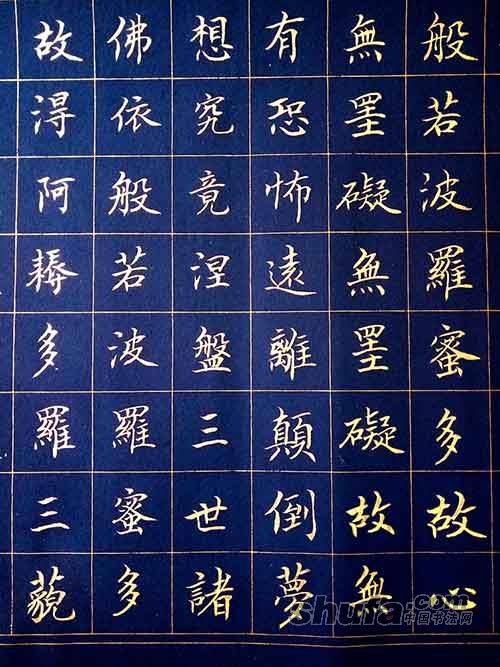 般若波羅蜜多故心
無罣礙無罣礙故無
有恐怖遠離顛倒夢
想究竟涅盤三世諸
佛依般若波羅蜜多
故得阿耨多羅三藐
shufa.com
中国书法网